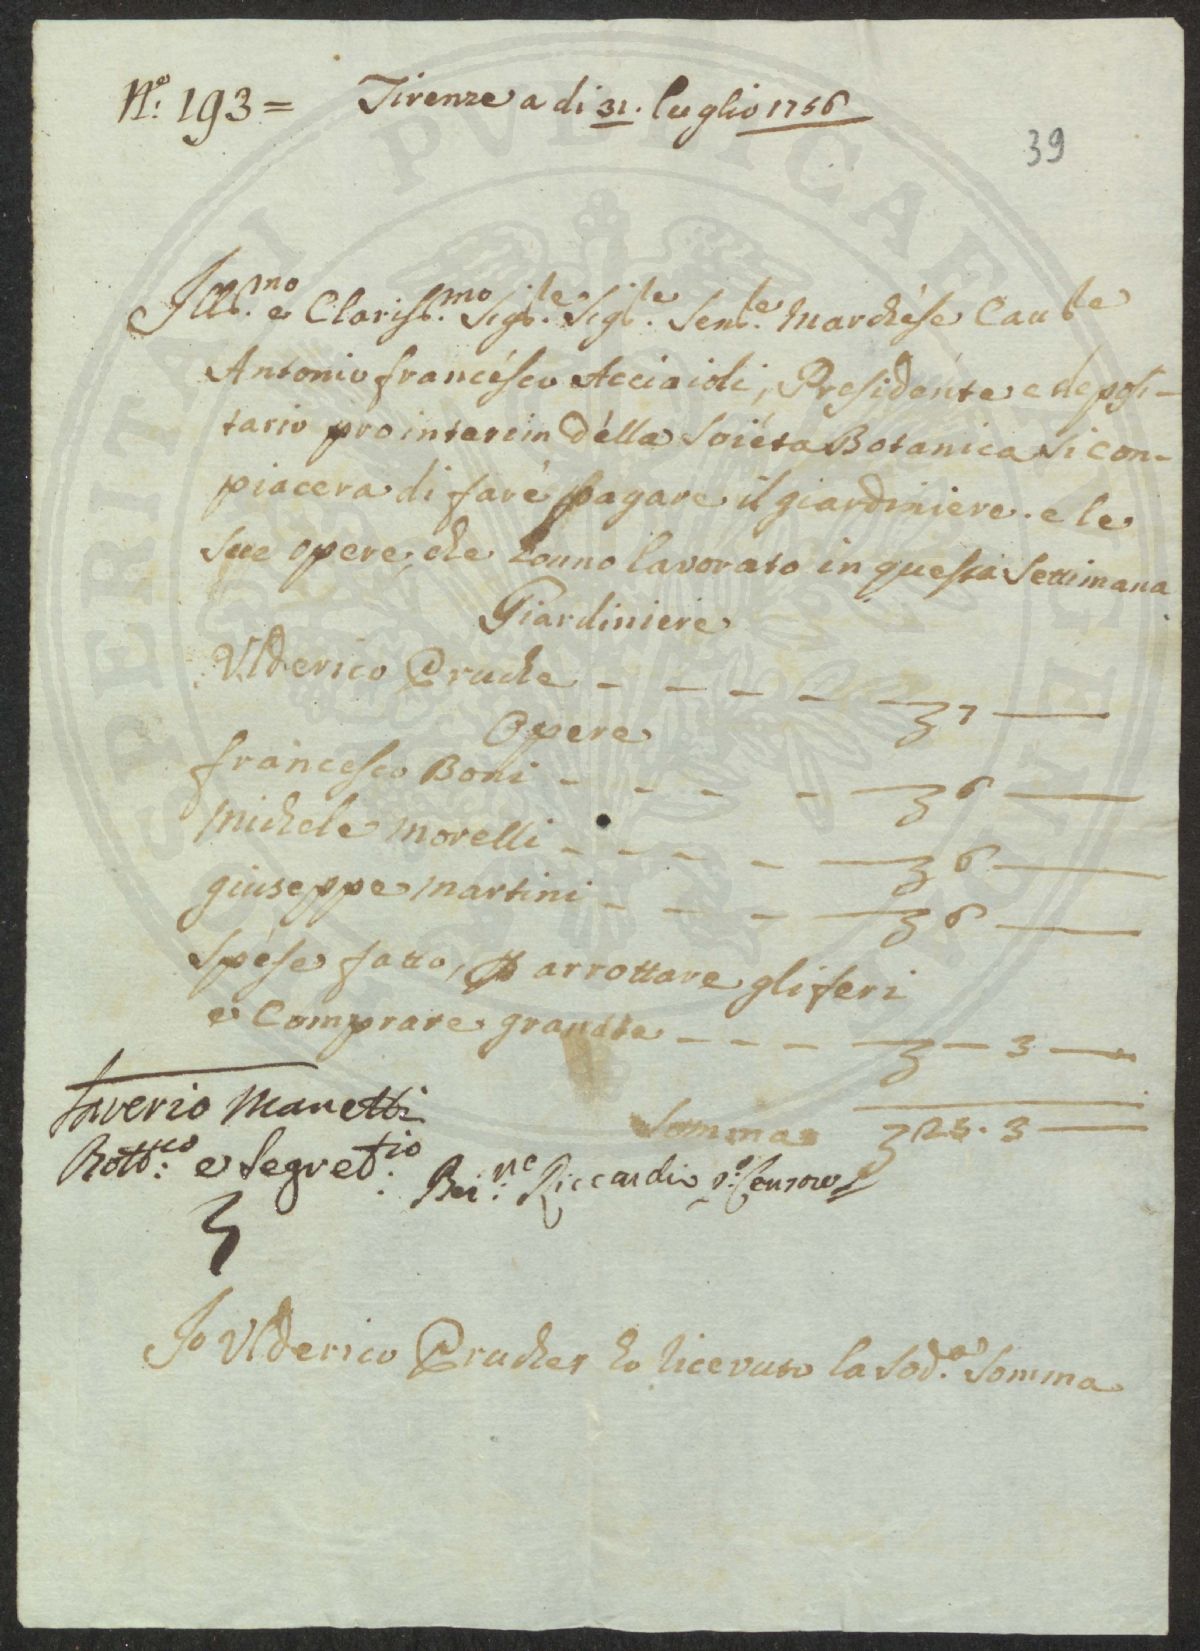 N.o 193 = Firenze a di 31. luglio 1756
39
Ill.mo e Clariss.mo Sig.le Sig.le Sen.le Marchése Cau.le
Antonio francésco Acciaioli, Présidénte e deposi-
tario pro interim délla Sociéta Botanica si con-
piacera di faré pagare il giardiniere. e le
sue opere, che hanno lavorato in questa Settimana
Giardiniere
Ulderico Pruche - - - - 7 —
Opere
francesco Boni - - - - 6 —
Michele Morelli - - - - 6 —
giuseppe Martini - - - 6 —
Spése fatto, p arrottare gli feri
e Comprare granate - - - - 3 —
Somma 25. 3 —
Saverio Manetti
Bott.co e Segret.io
Ber.ne Riccardi p.o Censore
Io Ulderico Prucher ho ricevuto la sod.a Somma
PVBLICAE